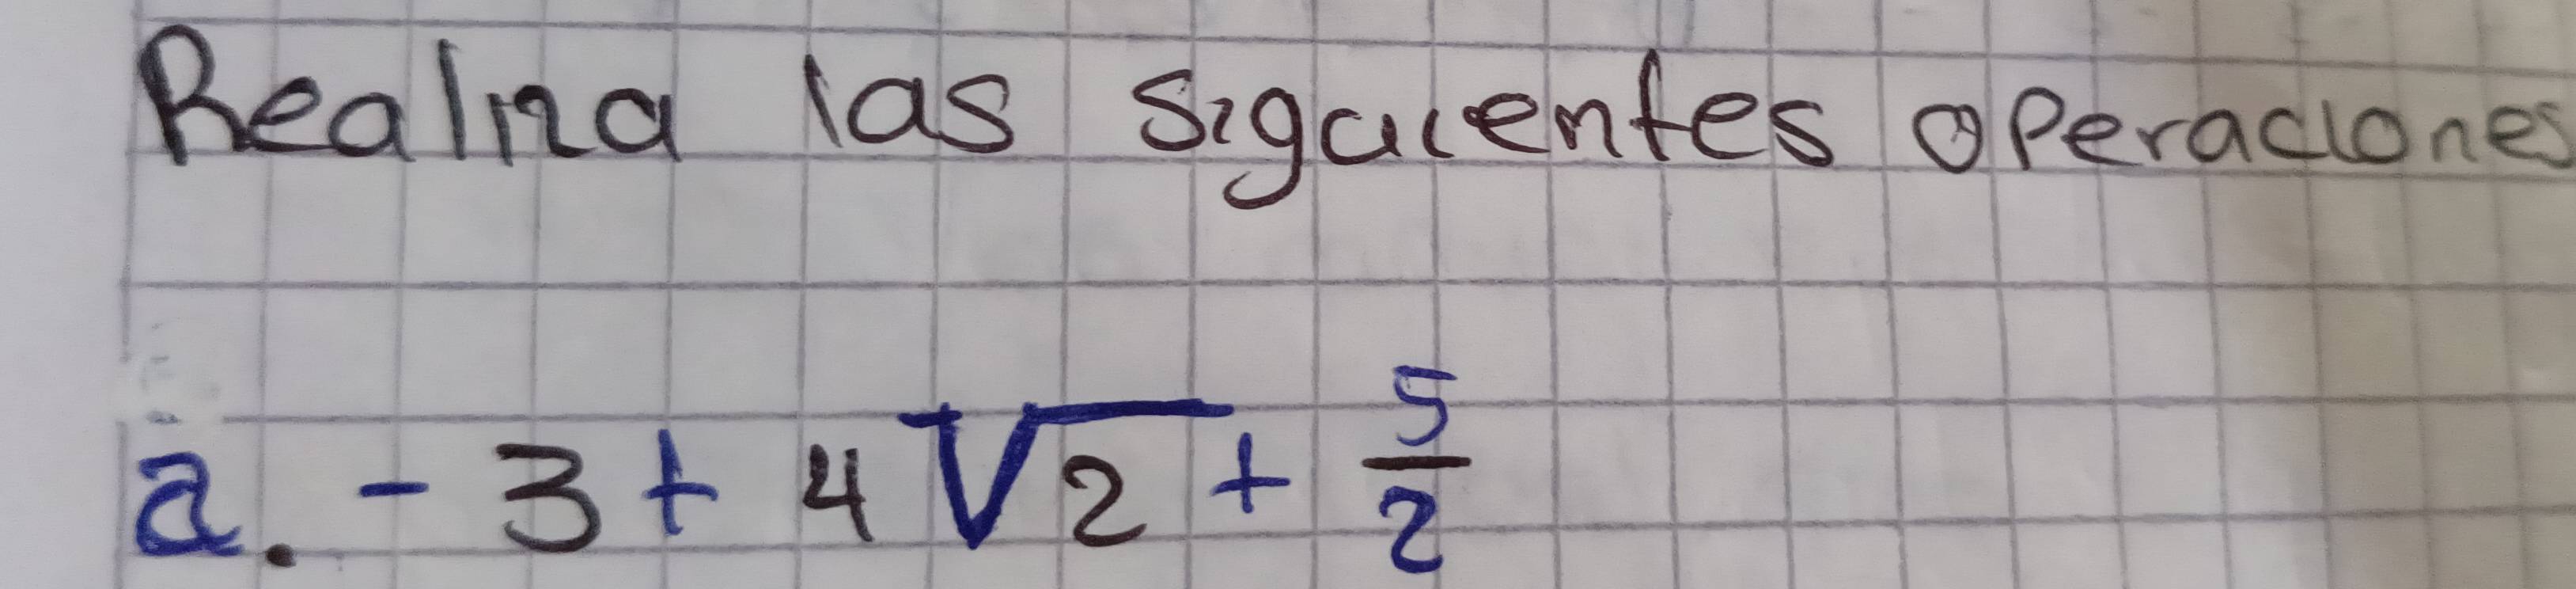 Realiza las siguientes operaciones
a. - 3 + 4√2 + 5/2